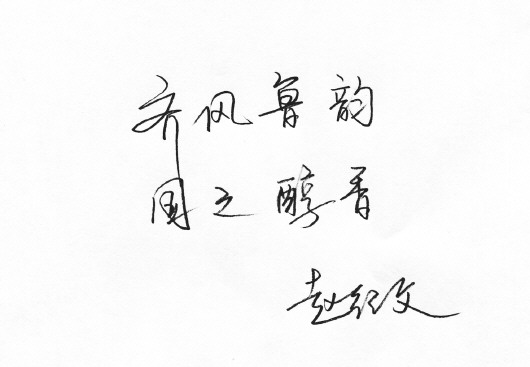 齐风鲁韵
国之醇香
赵纪文